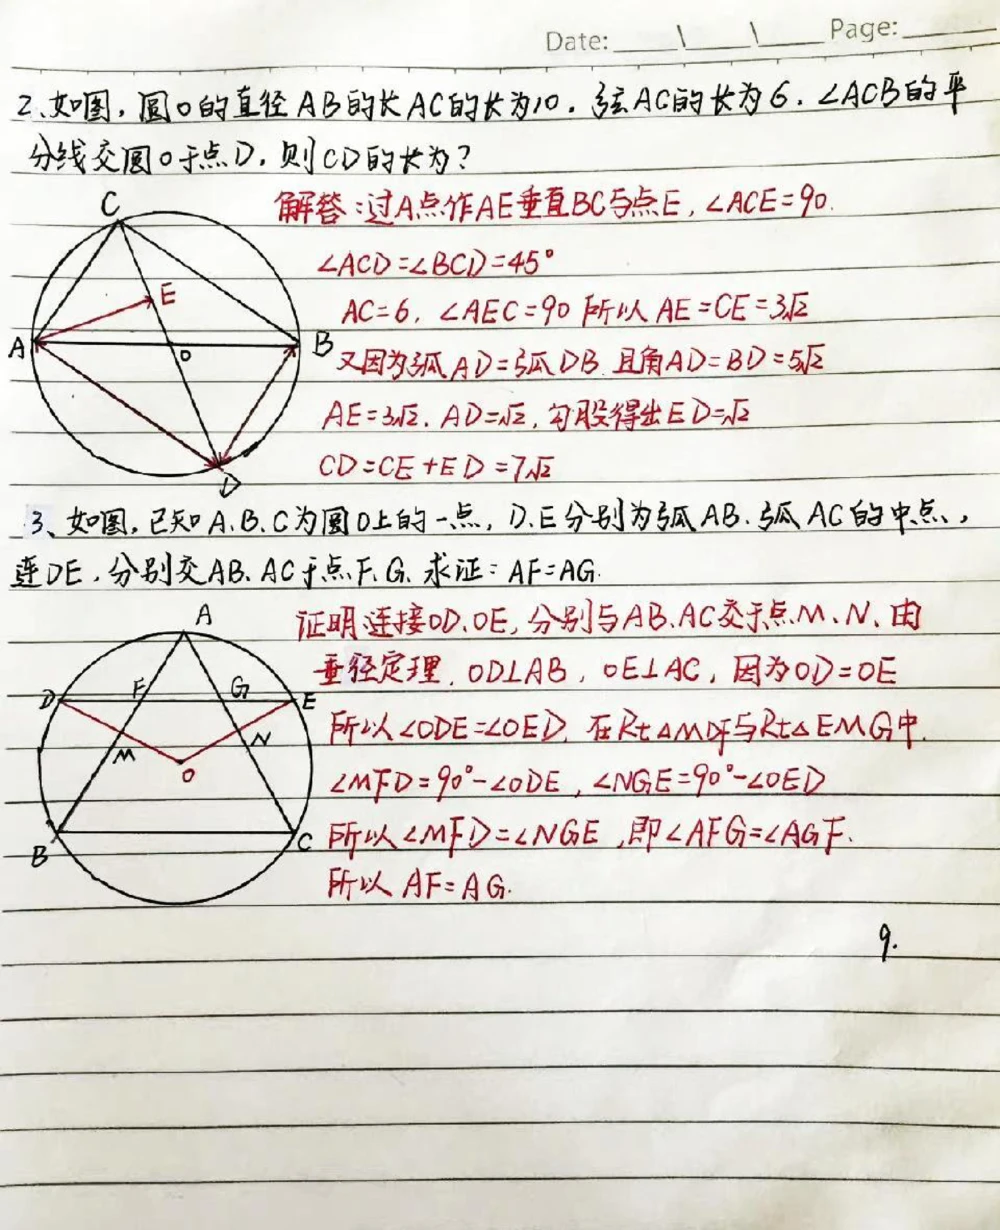 Date: ____\____\____ Page: ____
2、如图，圆O的直径AB的长AC的长为10．弦AC的长为6．∠ACB的平
分线交圆O于点D．则CD的长为？
解答：过A点作AE垂直BC与点E，∠ACE=90．
∠ACD=∠BCD=45°
AC=6．∠AEC=90 所以AE=CE=3√2
又因为弧AD=弧DB．且角AD=BD=5√2
AE=3√2．AD=√2．勾股得出ED=√2
CD=CE+ED=7√2
C
E
A
O
B
D
3、如图，已知A．B．C为圆O上的一点，D．E分别为弧AB．弧AC的中点，
连DE．分别交AB．AC于点F．G．求证：AF=AG．
证明连接OD．OE，分别与AB．AC交于点M．N、由
垂径定理．OD⊥AB，OE⊥AC，因为OD=OE
所以∠ODE=∠OED．在Rt△MDF与Rt△EMG中．
∠MFD=90°-∠ODE，∠NGE=90°-∠OED
所以∠MFD=∠NGE，即∠AFG=∠AGF．
所以AF=AG．
A
D
F
G
E
M
N
O
B
C
9.